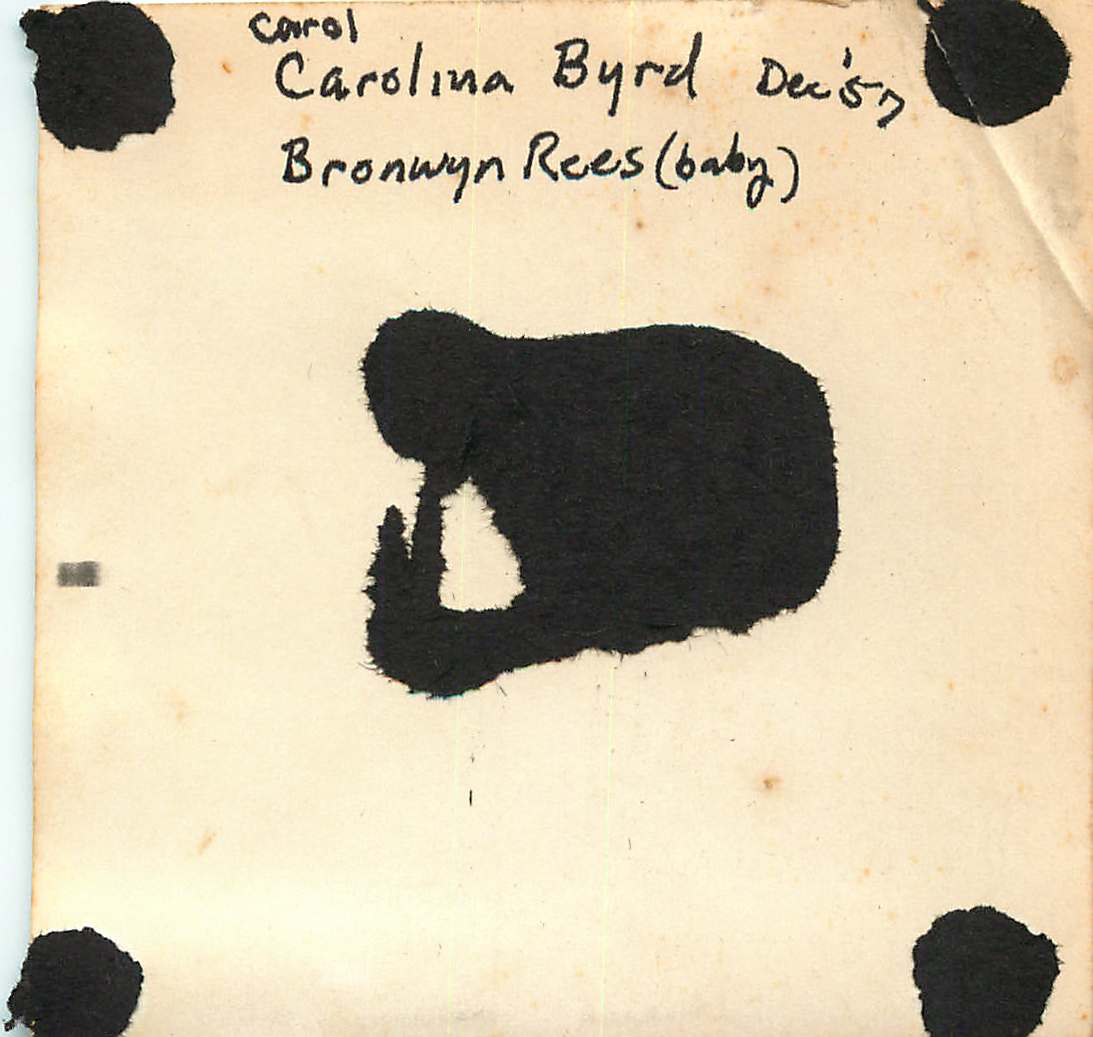 Carol
Carolina Byrd Dec '57
Bronwyn Rees (baby)